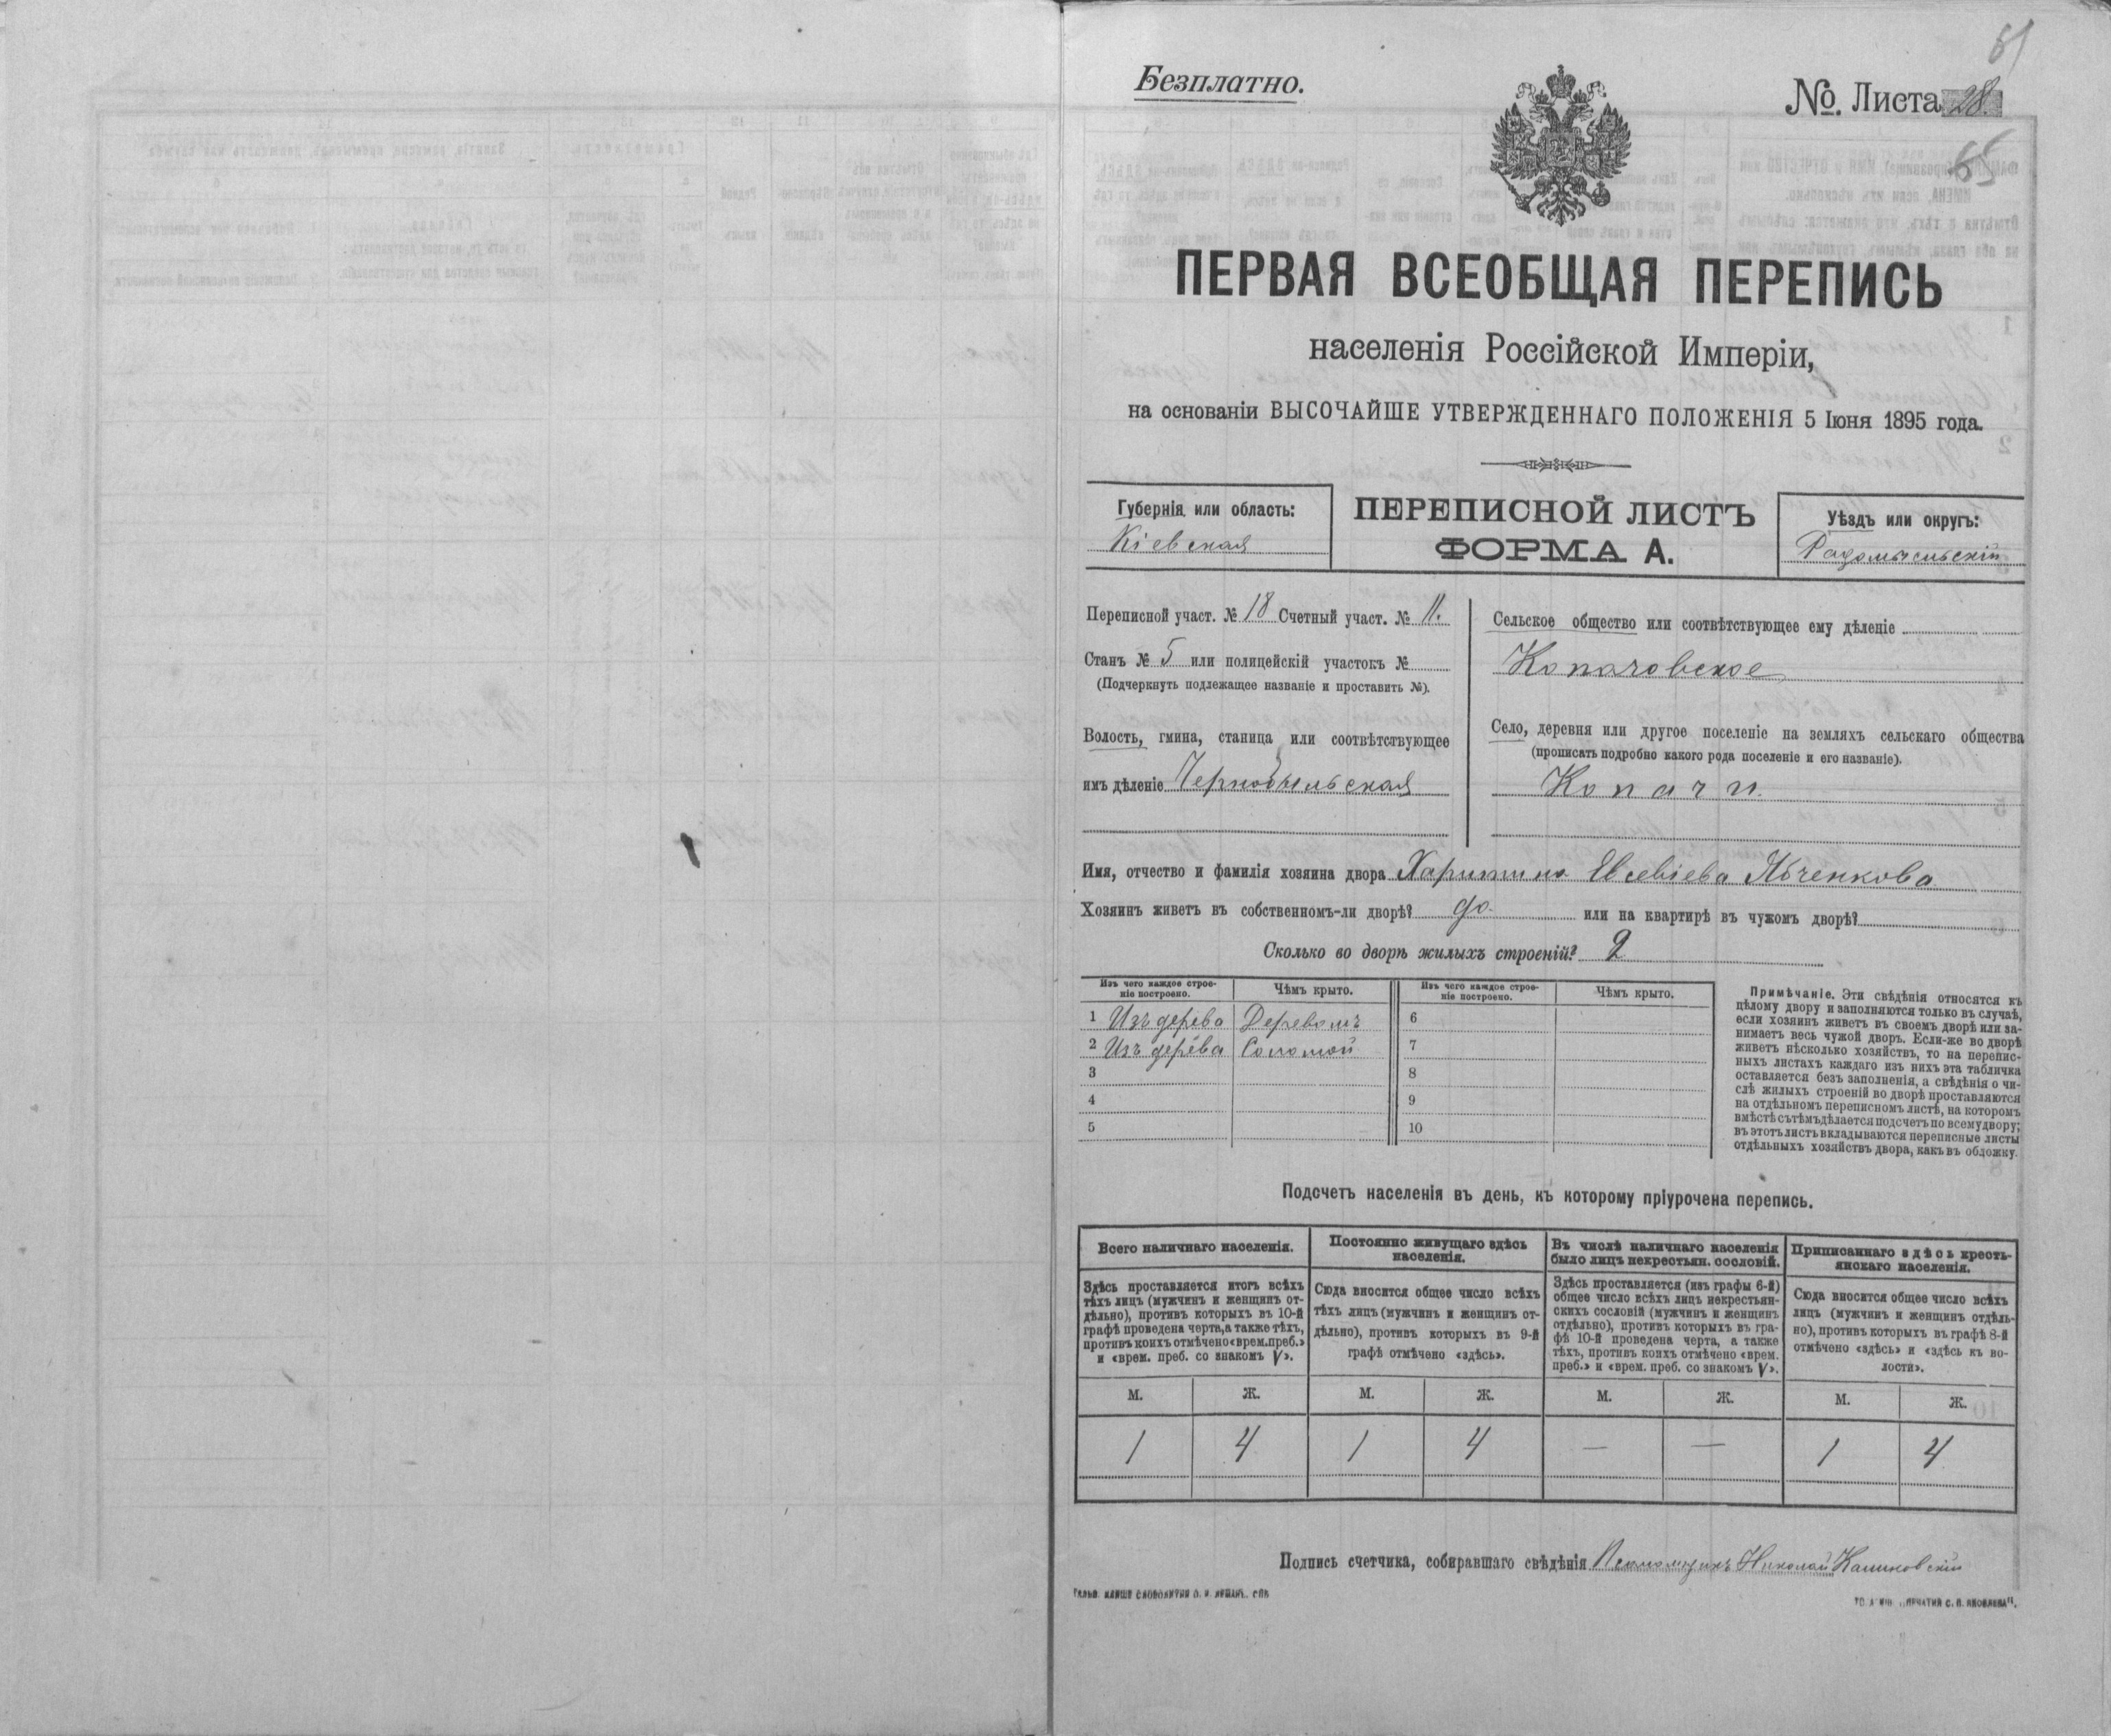 61
Безплатно.
№. Листа 28.
65
ПЕРВАЯ ВСЕОБЩАЯ ПЕРЕПИСЬ
населенія Россійской Имперіи,
на основаніи ВЫСОЧАЙШЕ УТВЕРЖДЕННАГО ПОЛОЖЕНІЯ 5 Іюня 1895 года.
Губернія или область:
Кіевская
ПЕРЕПИСНОЙ ЛИСТЪ
ФОРМА А.
Уѣздъ или округъ:
Радомысльскій
Переписной участ. № 18 Счетный участ. № 11.
Станъ № 5 или полицейскій участокъ №
(Подчеркнуть подлежащее названіе и проставить №).
Волость, гмина, станица или соотвѣтствующее
имъ дѣленіе Чернобыльская
Сельское общество или соотвѣтствующее ему дѣленіе
Копачовское
Село, деревня или другое поселеніе на земляхъ сельскаго общества
(прописать подробно какого рода поселеніе и его названіе).
Копачи.
Имя, отчество и фамилія хозяина двора Харитина Евсевіева Яченкова
Хозяинъ живетъ въ собственномъ-ли дворѣ? да. или на квартирѣ въ чужомъ дворѣ?
Сколько во дворѣ жилыхъ строеній? 2
Изъ чего каждое строе-
ніе построено.
Чѣмъ крыто.
Изъ чего каждое строе-
ніе построено.
Чѣмъ крыто.
1 Изъ дерева Деревомъ 6
2 Изъ дерева Соломой 7
3 8
4 9
5 10
Примѣчаніе. Эти свѣдѣнія относятся къ
цѣлому двору и заполняются только въ случаѣ,
если хозяинъ живетъ въ своемъ дворѣ или за-
нимаетъ весь чужой дворъ. Если-же во дворѣ
живетъ нѣсколько хозяйствъ, то на перепис-
ныхъ листахъ каждаго изъ нихъ эта табличка
оставляется безъ заполненія, а свѣдѣнія о чи-
слѣ жилыхъ строеній во дворѣ проставляются
на отдѣльномъ переписномъ листѣ, на которомъ
вмѣстѣ съ тѣмъ дѣлается подсчетъ по всему двору;
въ этотъ листъ вкладываются переписные листы
отдѣльныхъ хозяйствъ двора, какъ въ обложку.
Подсчетъ населенія въ день, къ которому пріурочена перепись.
Всего наличнаго населенія.
Здѣсь проставляется итогъ всѣхъ
тѣхъ лицъ (мужчинъ и женщинъ от-
дѣльно), противъ которыхъ въ 10-й
графѣ проведена черта, а также тѣхъ,
противъ коихъ отмѣчено «врем. преб.»
и «врем. преб. со знакомъ V».
Постоянно живущаго здѣсь
населенія.
Сюда вносится общее число всѣхъ
тѣхъ лицъ (мужчинъ и женщинъ от-
дѣльно), противъ которыхъ въ 9-й
графѣ отмѣчено «здѣсь».
Въ числѣ наличнаго населенія
было лицъ некрестьян. сословій.
Здѣсь проставляется (изъ графы 6-й)
общее число всѣхъ лицъ некрестьян-
скихъ сословій (мужчинъ и женщинъ
отдѣльно), противъ которыхъ въ гра-
фѣ 10-й проведена черта, а также
тѣхъ, противъ коихъ отмѣчено «врем.
преб.» и «врем. преб. со знакомъ V».
Приписаннаго здѣсь кресть-
янскаго населенія.
Сюда вносится общее число всѣхъ
лицъ (мужчинъ и женщинъ отдѣль-
но), противъ которыхъ въ графѣ 8-й
отмѣчено «здѣсь» и «здѣсь къ во-
лости».
М. Ж. М. Ж. М. Ж. М. Ж.
1 4 1 4 — — 1 4
Подпись счетчика, собиравшаго свѣдѣнія Псаломщикъ Николай Калиновскій